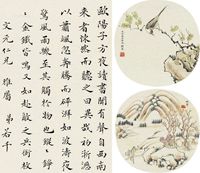 歐陽子方夜讀書聞有聲自西南
來者悚然而聽之曰異哉初淅瀝
以蕭颯忽奔騰而砰湃如波濤夜
驚風雨驟至其觸於物也鏦鏦錚
錚金鐵皆鳴又如赴敵之兵銜枚
文元仁兄 雅屬 弟若